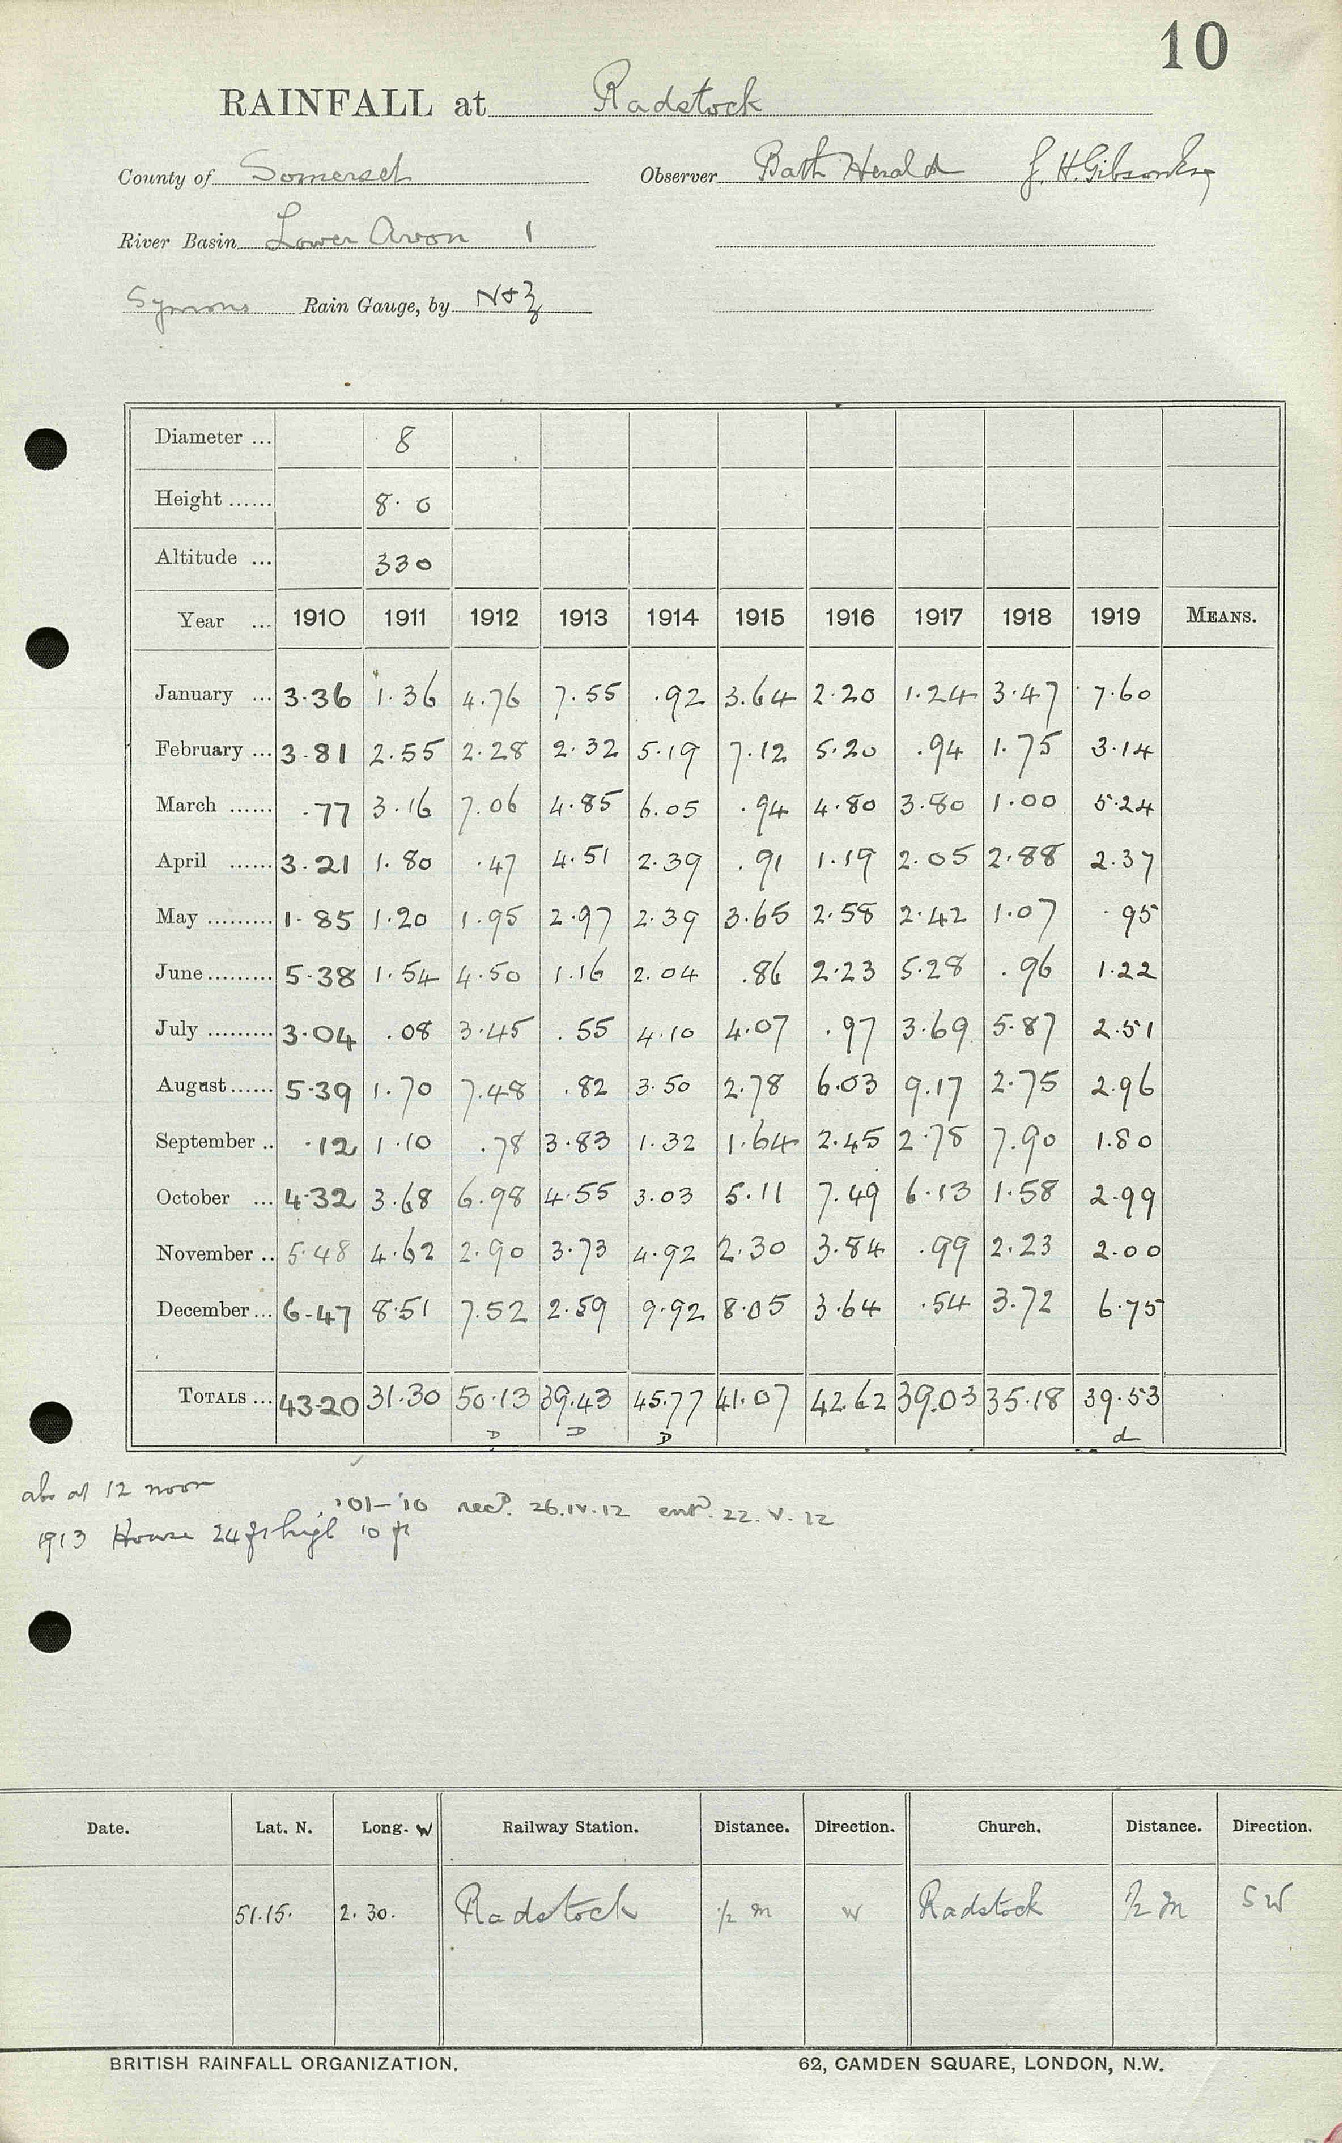 10
RAINFALL at Radstock
County of Somerset Observer Bath Herald J. H. Gibson Esq
River Basin Lower Avon 1
Symons Rain Gauge, by N & Z
Diameter ... 8
Height ...... 8. 0
Altitude ... 330
Year ... 1910 1911 1912 1913 1914 1915 1916 1917 1918 1919 MEANS.
January ... 3.36 1.36 4.76 7.55 .92 3.64 2.20 1.24 3.47 7.60
February ... 3.81 2.55 2.28 2.32 5.19 7.12 5.20 .94 1.75 3.14
March ...... .77 3.16 7.06 4.85 6.05 .94 4.80 3.80 1.00 5.24
April ...... 3.21 1.80 .47 4.51 2.39 .91 1.19 2.05 2.88 2.37
May ......... 1.85 1.20 1.95 2.97 2.39 3.65 2.58 2.42 1.07 .95
June ......... 5.38 1.54 4.50 1.16 2.04 .86 2.23 5.28 .96 1.22
July ......... 3.04 .08 3.45 .55 4.10 4.07 .97 3.69 5.87 2.51
August ...... 5.39 1.70 7.48 .82 3.50 2.78 6.03 9.17 2.75 2.96
September .. .12 1.10 .78 3.83 1.32 1.64 2.45 2.78 7.90 1.80
October ... 4.32 3.68 6.98 4.55 3.03 5.11 7.49 6.13 1.58 2.99
November .. 5.48 4.62 2.90 3.73 4.92 2.30 3.84 .99 2.23 2.00
December ... 6.47 8.51 7.52 2.59 9.92 8.05 3.64 .54 3.72 6.75
TOTALS ... 43.20 31.30 50.13 39.43 45.77 41.07 42.62 39.03 35.18 39.53
D D D d
at 12 noon
'01-'10 recd. 26.IV.12 entd. 22.V.12
1913 House 24 ft high 10 ft
Date. Lat. N. Long. W Railway Station. Distance. Direction. Church. Distance. Direction.
51.15. 2.30. Radstock ½ m W Radstock ½ m SW
BRITISH RAINFALL ORGANIZATION. 62, CAMDEN SQUARE, LONDON, N.W.